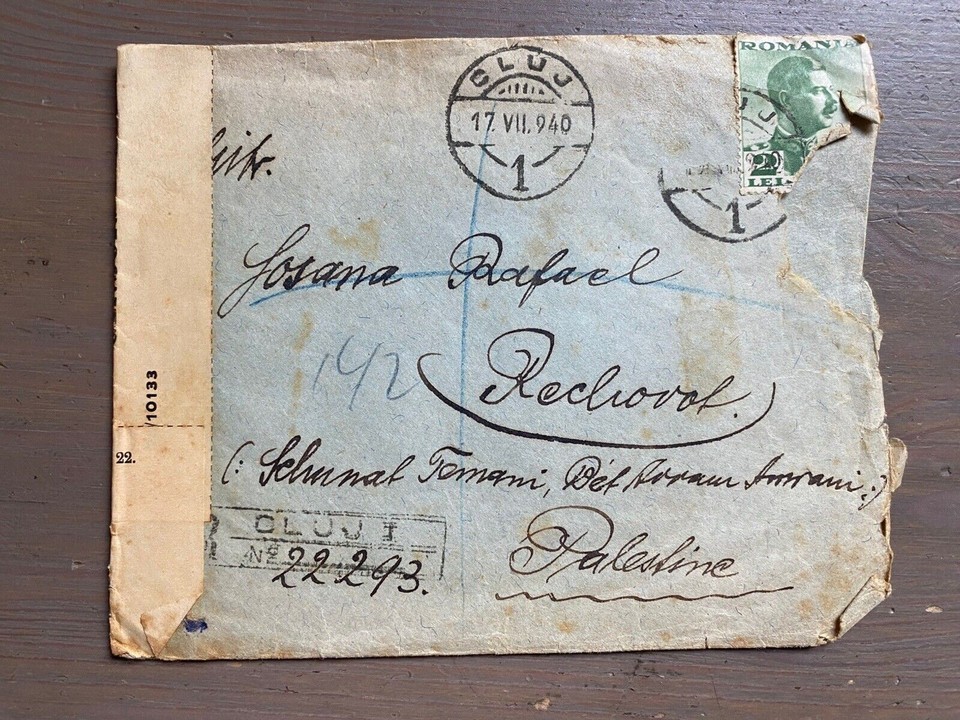 CLUJ
17.VII.940
1
ROMANIA
2
LEI
1
Rafael
Rechovot.
/10133
22.
(: Schunat Temani, Bét Avram Amrani :)
CLUJ I
No 22293.
Palestine
142